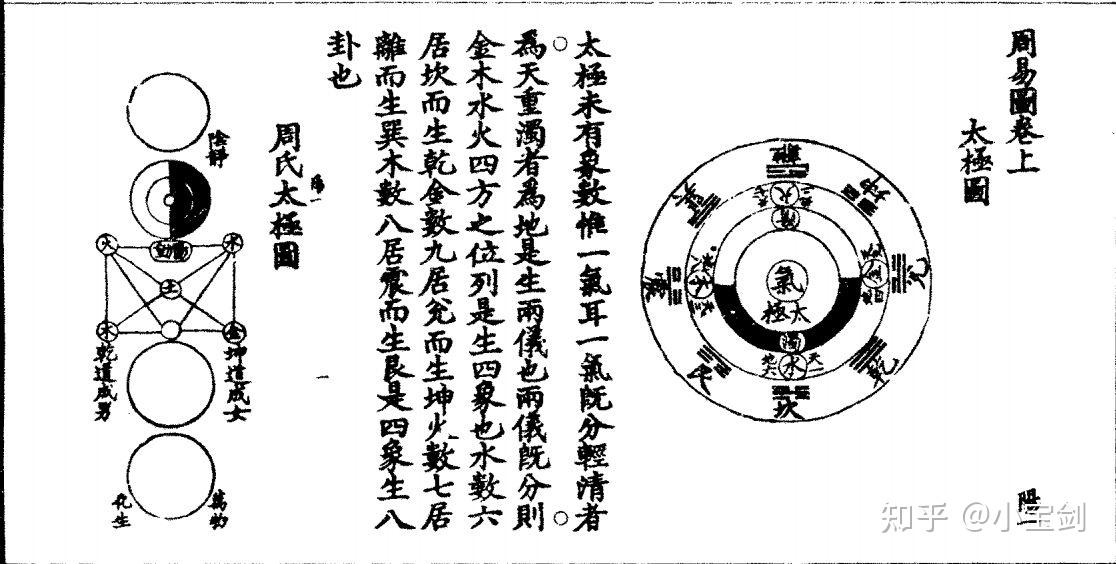 周易圖卷上
太極圖
離
坤
兌
乾
坎
艮
震
巽
火
陽
金
木
氣
太極
濁
水
天一
地六
陽一
太極未有象數惟一氣耳一氣既分輕清者
爲天重濁者爲地是生兩儀也兩儀既分則
金木水火四方之位列是生四象也水數六
居坎而生乾金數九居兌而生坤火數七居
離而生巽木數八居震而生艮是四象生八
卦也
周氏太極圖
陽一
陰靜
陽動
火
水
土
木
金
乾道成男
坤道成女
萬物
化生
一
知乎 @小宝剑